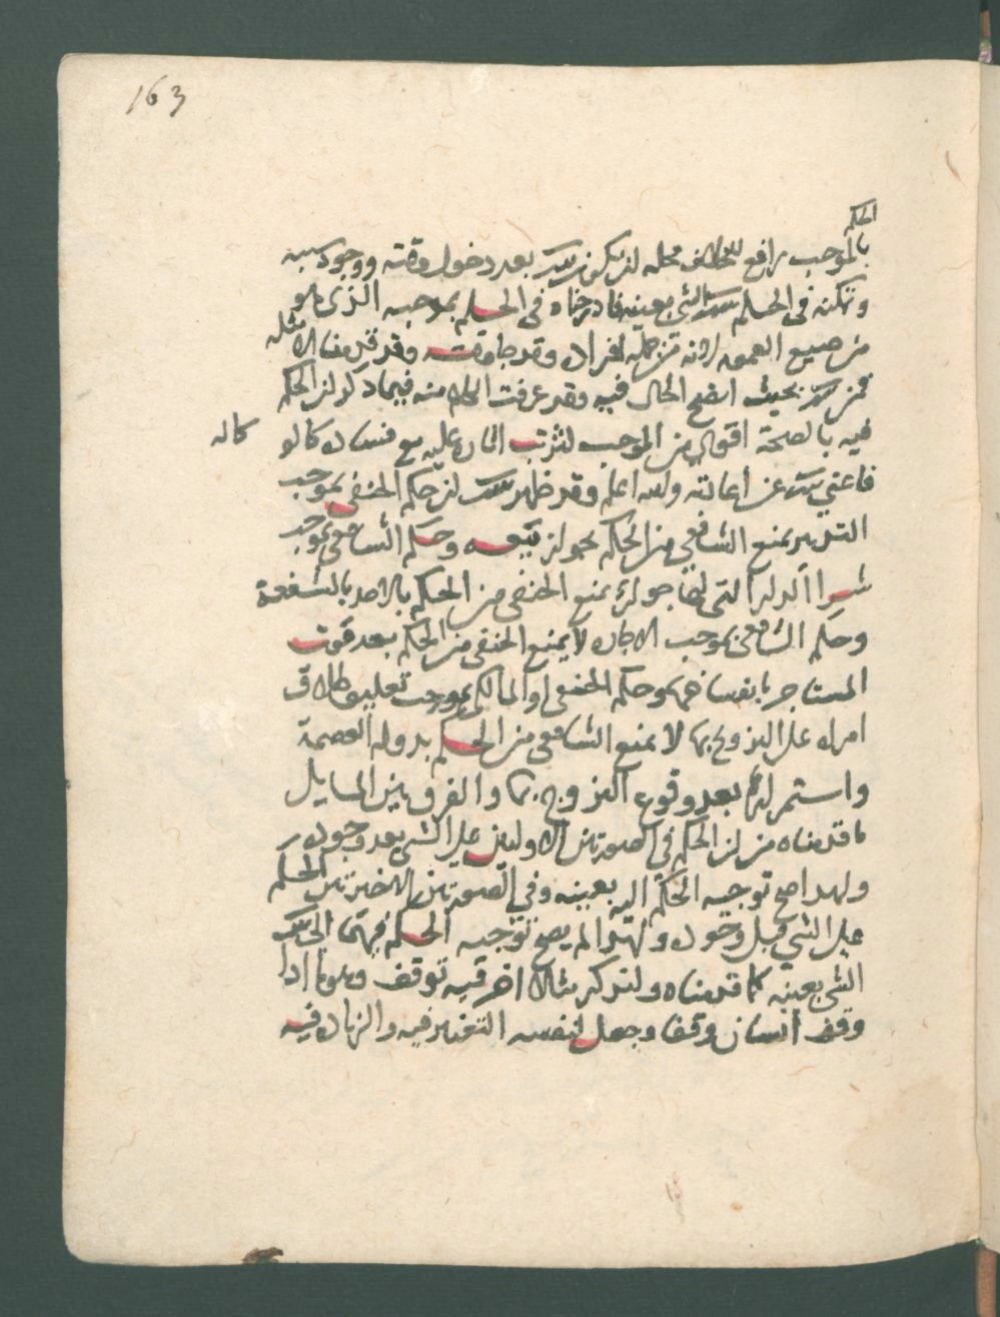 163
الحكم
بالموجب رافع للخلاف محله ان يكون بعد دخول وقته ووجود سببه
وتكنه في الحكم بعينه فادرجناه في الحكم بموجبه الذي هو
من صيغ العموم لانه من جملة افراده وقد جا وقت وقد قدمنا الامثله
بحيث اتضح الحال فيه وقد عرفت الكلام منه فيما ذكر ان الحكم
فيه بالصحة اقوى من الموجب لترتب اثاره عليه مع فساده كما لو
كاله
فاغني عن اعادته والله اعلم وقد ظهر ان حكم الحنفي بموجب
التدبير يمنع الشافعي من الحكم بجواز بيعه وحكم الشافعي بموجب
شرا الدار التي لها جوار يمنع الحنفي من الحكم بالاخذ بالشفعة
وحكم الشافعي بموجب الاجاره لا يمنع الحنفي من الحكم بعد موت
المستاجر بانفساخها وحكم الحنفي او المالكي بموجب تعليق طلاق
امراه على التزويج بها لا يمنع الشافعي من الحكم بدوام العصمة
واستمرارها بعد وقوع التزويج بها والفرق بين المسايل
ما قدمناه من ان الحكم في الصورتين الاوليين على الشي بعد وجوده
ولهذا صح توجيه الحكم اليه بعينه وفي الصورتين الاخيرتين الحكم
على الشي قبل وجوده ولهذا لم يصح توجيه الحكم فيهما الى
الشي بعينه كما قدمناه ولنذكر مثالا اخر فيه توقف وهو ما اذا
وقف انسان وقفا وجعل لنفسه التغيير فيه والزياده فيه